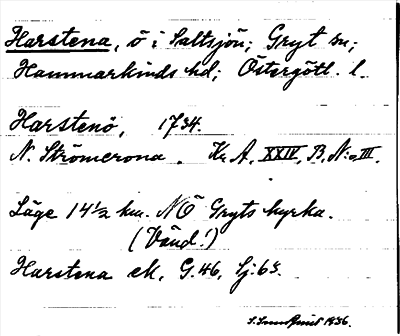 Harstena, ö i Saltsjön; Gryt sn;
Hammarkinds hd; Östergötl. l.
Harstenö, 1734.
N. Strömcrona. Kr. A, XXIV, B, N:o III.
Läge 14 1/2 km. NÖ Gryts kyrka.
(Vänd!)
Harstena ek, G. 46, Sj: 63.
1936.